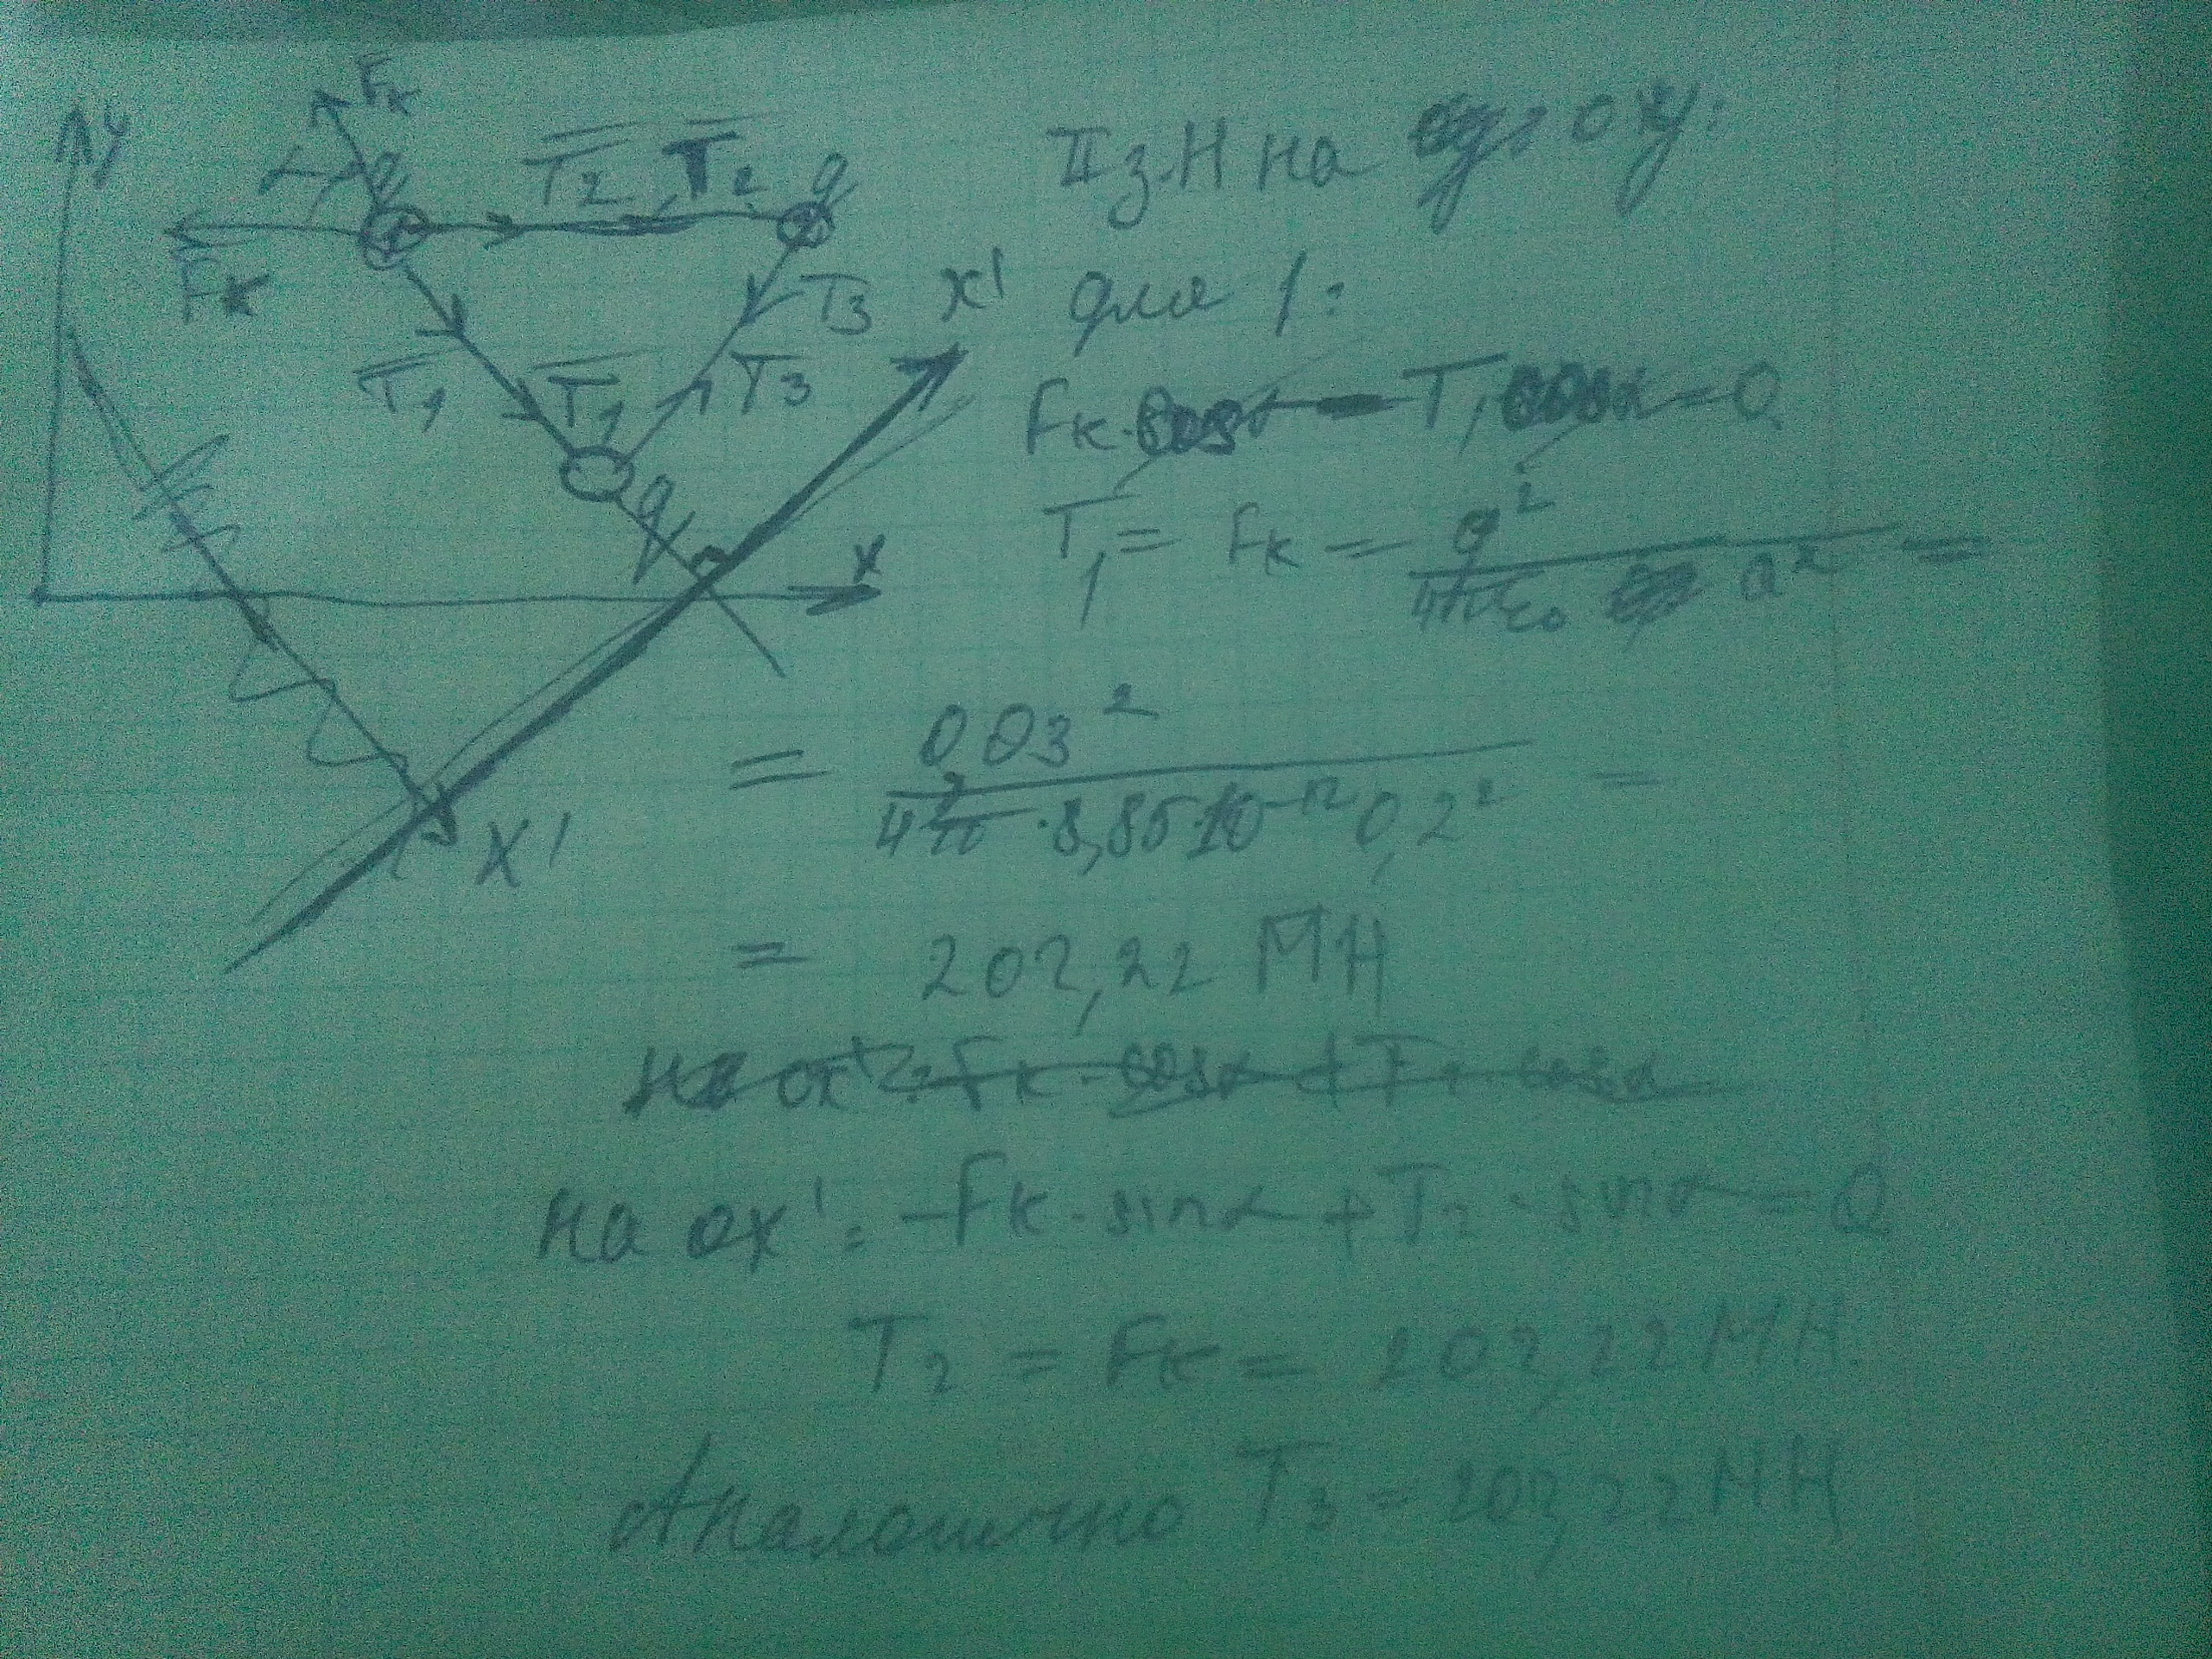 y
Fк
α
q
T₂, T₂
q
Fк
T₃
x'
T₁
T₁
T₃
q
x
x'
II з.Н на оу:
для 1:
Fк · cosα − T₁ cosα = 0
T₁ = Fк = q² / 4πε₀ a² =
= 0 03² / 4π · 8,85 · 10⁻¹² 0,2² =
= 202,22 МН
на ох'²: Fк · cosα + T₁ · cosα
на ох': −Fк · sinα + T₂ · sinα = 0
T₂ = Fк = 202,22 МН.
Аналогично T₃ = 202,22 МН